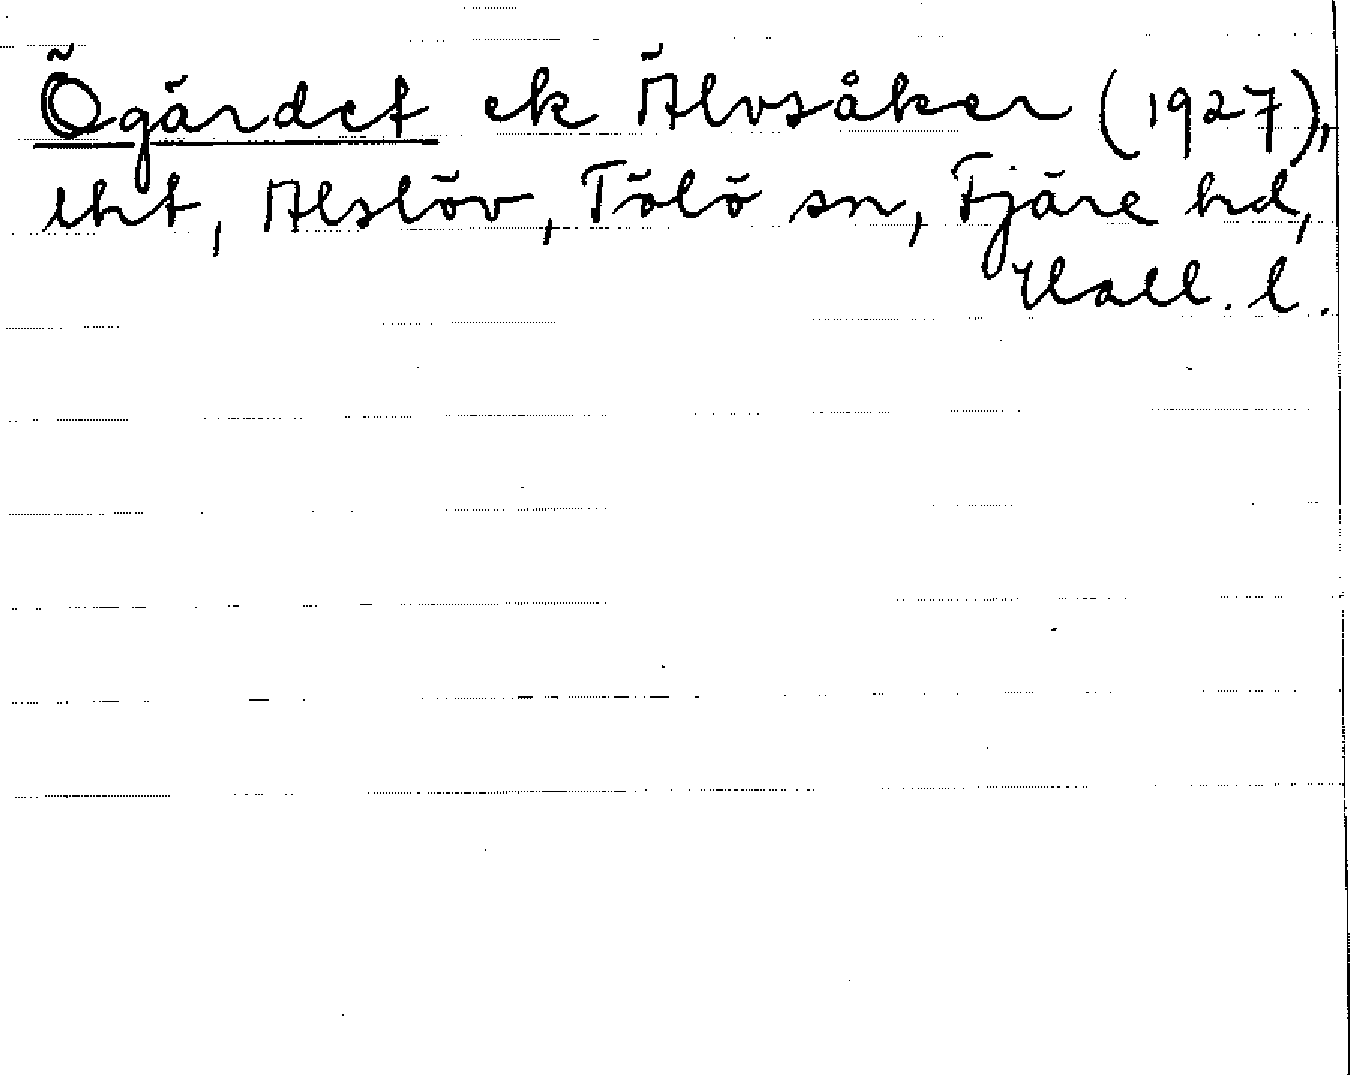 Ögärdet ek Älvsåker (1927),
lht, Alslöv, Tölö sn, Fjäre hd,
Hall. l.